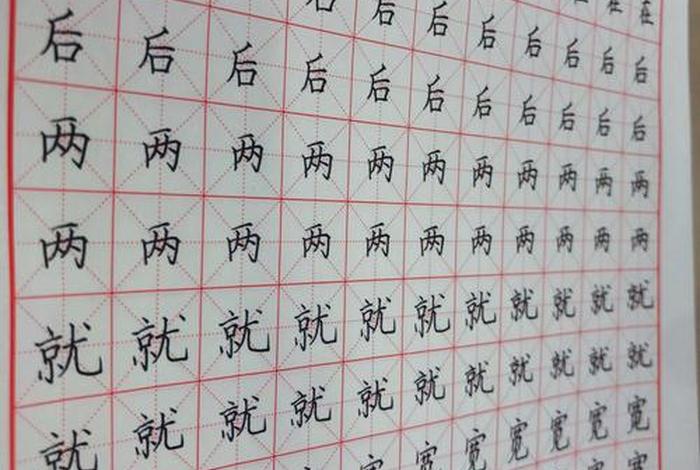 在在
后后后后后后后后
后后后后后后后后后后后
两两两两两两两两两两两
两两两两两两两两两两两
就就就就就就就就就就就
就就就就就就就就就就就
宽宽宽宽宽宽